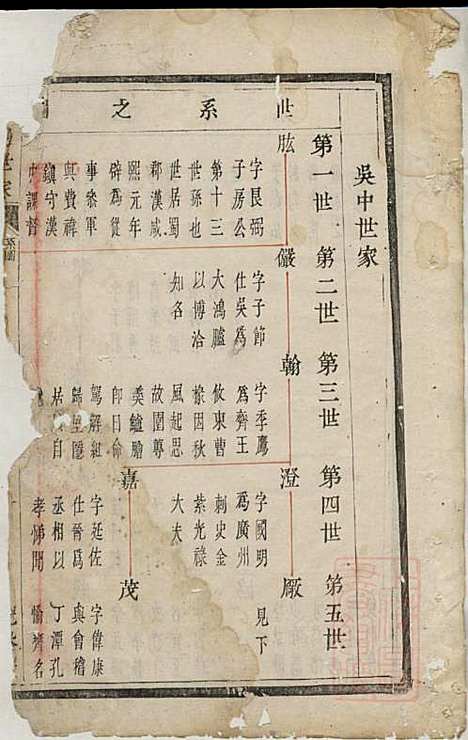 吳中世家
世系之
第一世
第二世
第三世
第四世
第五世
肱
字長弼
子房公
第十三
世孫也
世居蜀
郡漢咸
熙元年
辟為從
事參軍
與費禕
鎮守漢
中課督
儼
字子節
仕吳為
大鴻臚
以博洽
知名
翰
字季鷹
為齊王
攸東曹
掾因秋
風起思
故園蓴
羹鱸膾
即日命
駕解組
歸里隱
居自
澄
字國明
為廣州
刺史金
紫光祿
大夫
嘉
字延佐
仕晉為
丞相以
孝悌聞
厰
見下
茂
字偉康
與會稽
丁潭孔
愉齊名
世家